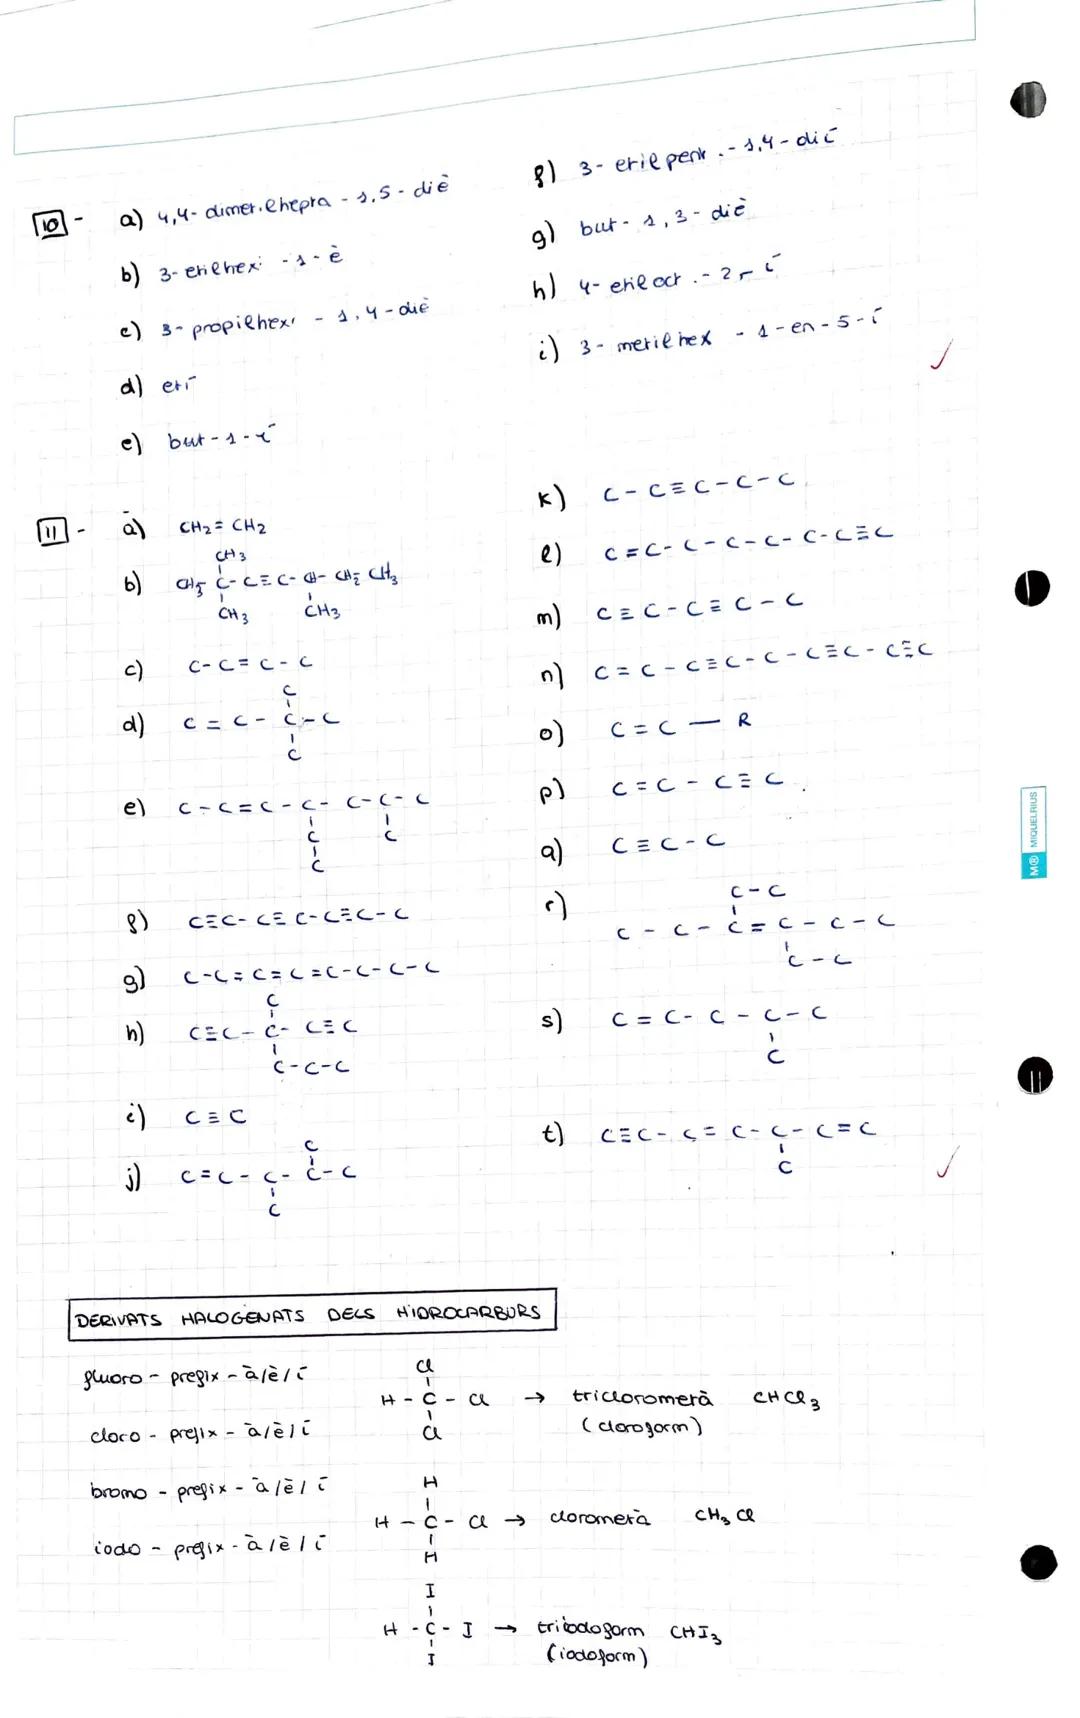 10 - a) 4,4- dimetilhepta - 1,5 - diè
b) 3- etilhexi - 1 - è
c) 3- propilhexi - 1,4 - diè
d) etí
e) but - 1 - í
f) 3- etilpent - 1,4 - dií
g) but - 1, 3 - diè
h) 4- etiloct - 2 - í
i) 3- metilhex - 1 - en - 5 - í
11 - a) CH2 = CH2
CH3
b) CH3 C - C ≡ C - CH - CH2 CH3
CH3 CH3
c) C - C = C - C
C
d) C = C - C - C
C
e) C - C = C - C - C - C - C
C C
C
f) C ≡ C - C ≡ C - C ≡ C - C
g) C - C = C = C = C - C - C - C
C
h) C ≡ C - C - C ≡ C
C - C - C
i) C ≡ C
C
j) C = C - C - C - C
C
k) C - C ≡ C - C - C
l) C = C - C - C - C - C - C ≡ C
m) C ≡ C - C ≡ C - C
n) C = C - C ≡ C - C - C ≡ C - C ≡ C
o) C = C — R
p) C = C - C ≡ C
q) C ≡ C - C
r) C - C
C - C - C = C - C - C
C - C
s) C = C - C - C - C
C
t) C ≡ C - C = C - C - C = C
C
M® MIQUELRIUS
DERIVATS HALOGENATS DELS HIDROCARBURS
fluoro - prefix - à/è/í
cloro - prefix - à/è/í
bromo - prefix - à/è/í
iodo - prefix - à/è/í
Cl
H - C - Cl → triclorometà CHCl3
Cl (cloroform)
H
H - C - Cl → clorometà CH3Cl
H
I
H - C - I → triiodoform CHI3
I (iodoform)